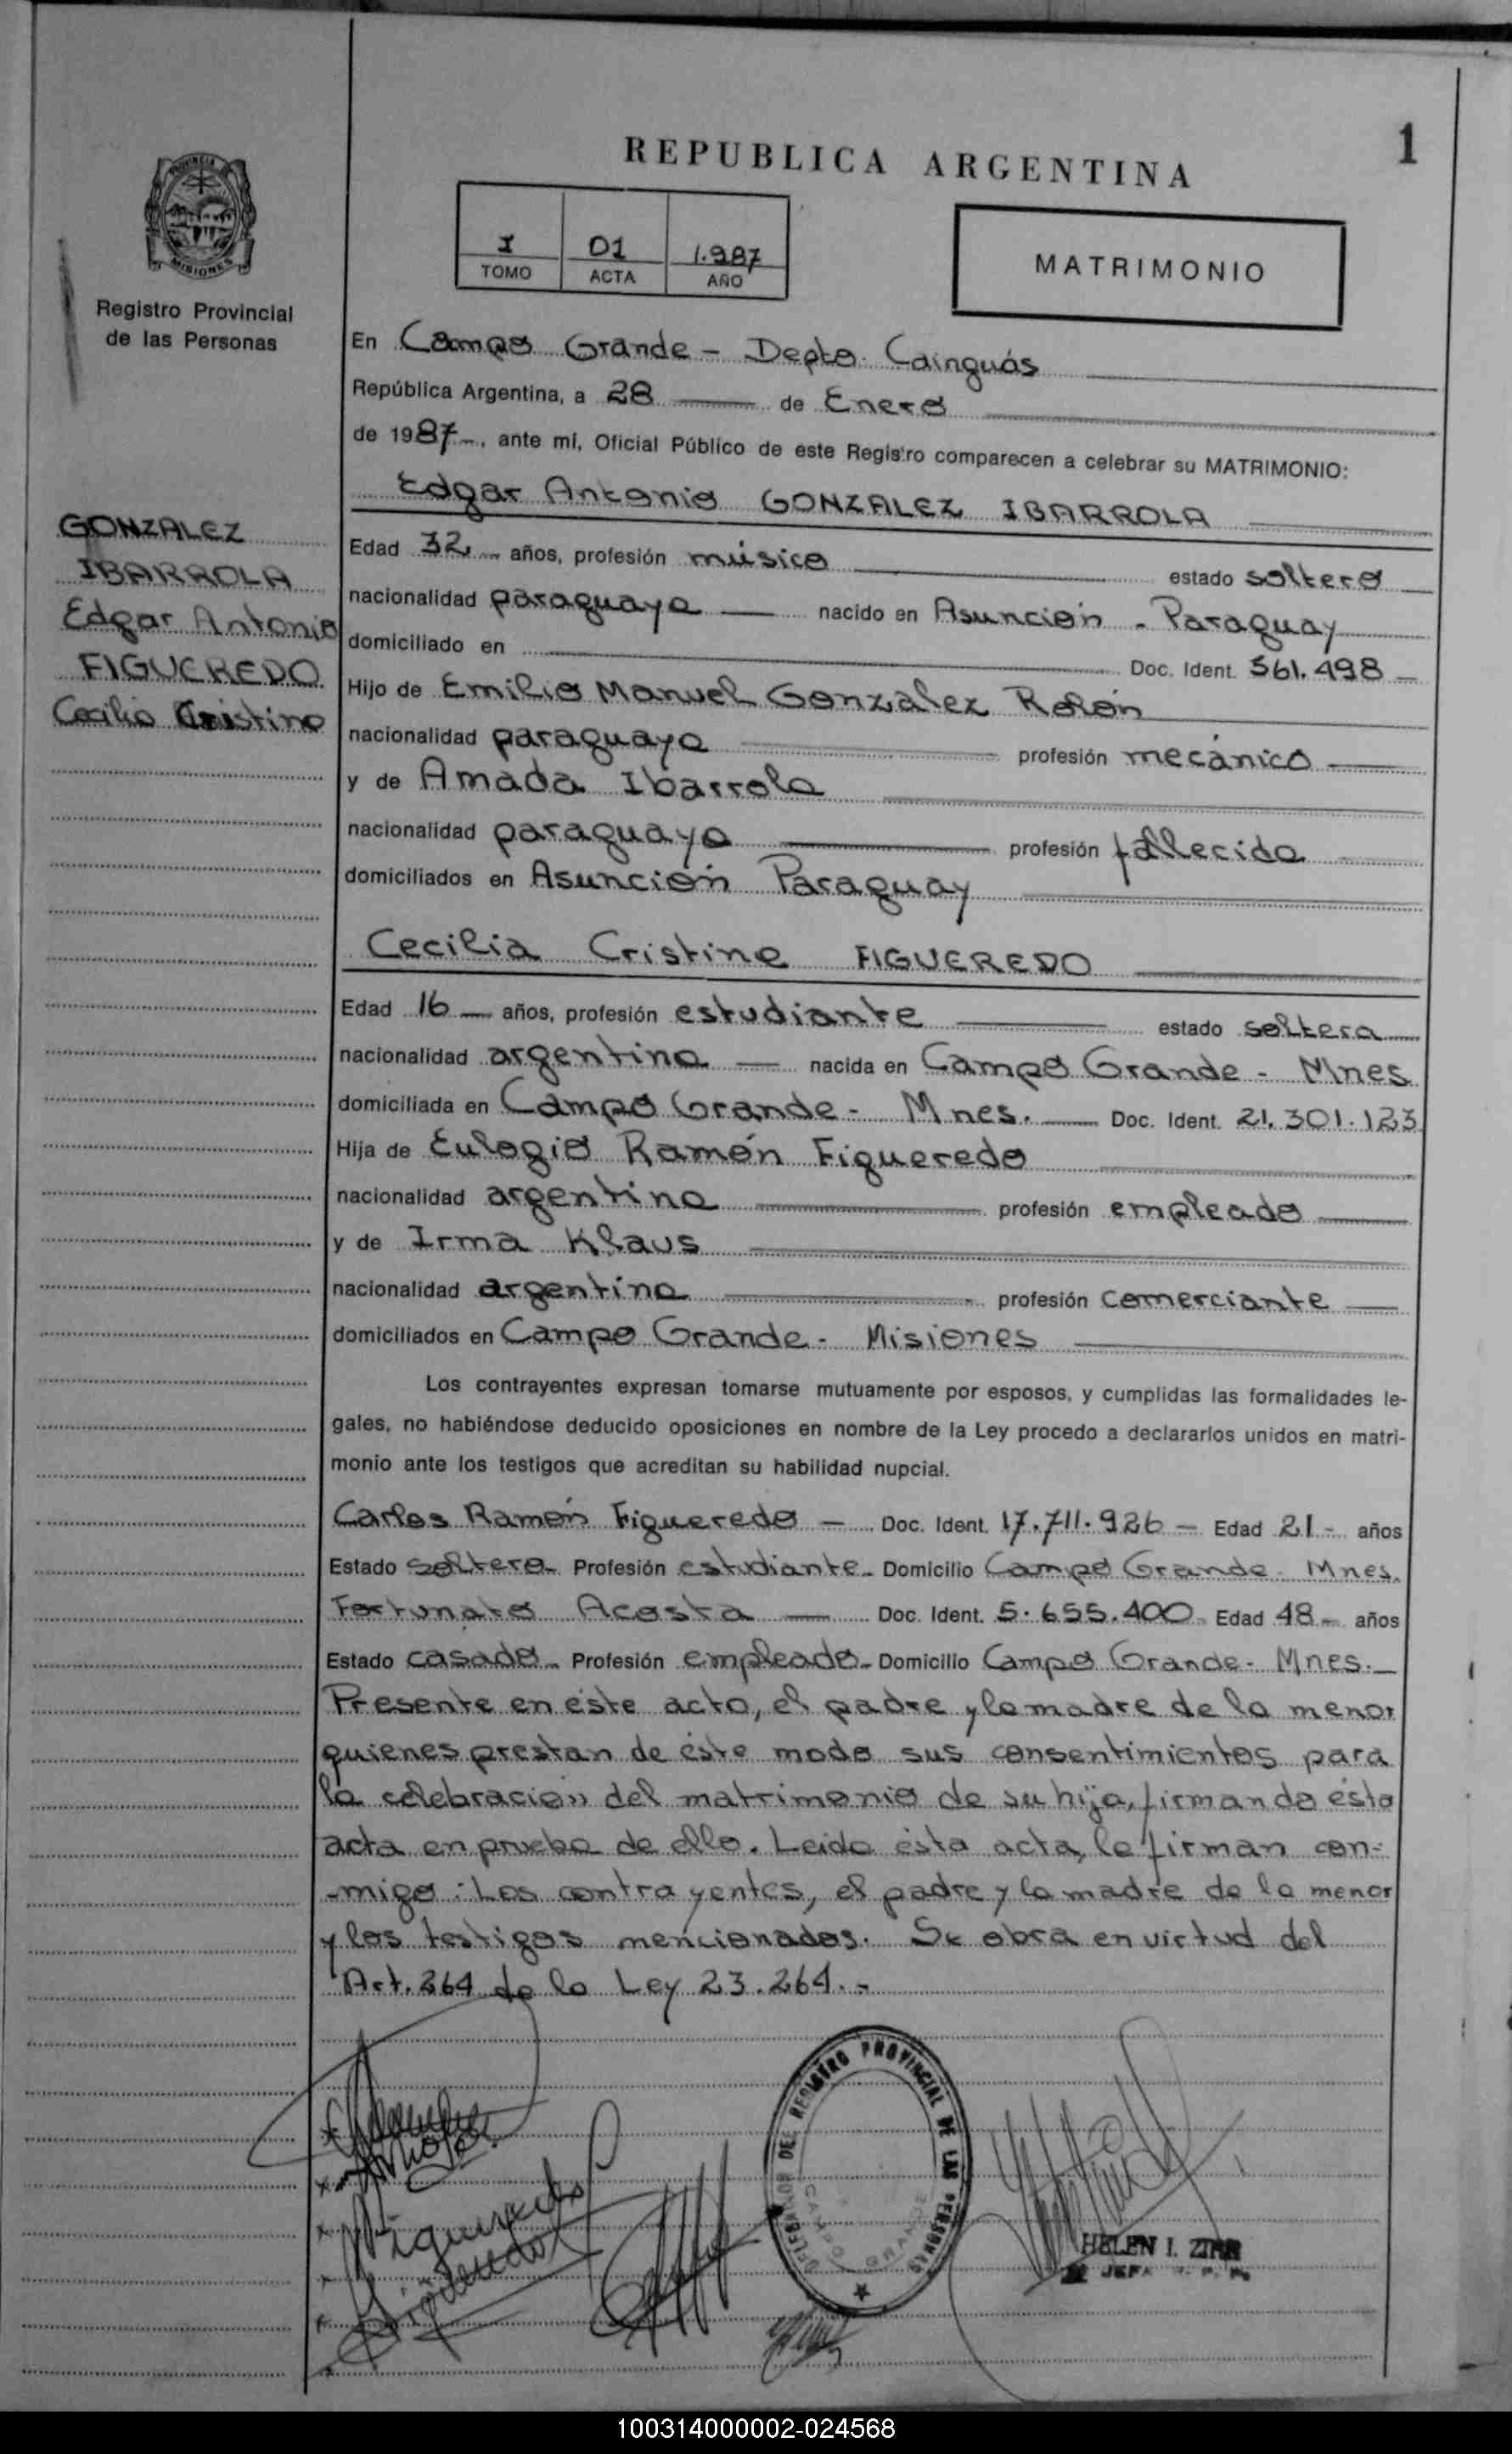 1
REPUBLICA ARGENTINA
PROVINCIA
MISIONES
Registro Provincial
de las Personas
I 01 1.987
TOMO ACTA AÑO
MATRIMONIO
En Campo Grande - Depto. Cainguás
República Argentina, a 28 de Enero
de 1987-, ante mí, Oficial Público de este Registro comparecen a celebrar su MATRIMONIO:
Edgar Antonio GONZALEZ IBARROLA
GONZALEZ
IBARROLA
Edgar Antonio
FIGUEREDO
Cecilia Cristina
Edad 32 años, profesión músico estado soltero
nacionalidad paraguaya nacido en Asunción - Paraguay
domiciliado en Doc. Ident. 561.498
Hijo de Emilio Manuel Gonzalez Rolón
nacionalidad paraguaya profesión mecánico
y de Amada Ibarrola
nacionalidad paraguaya profesión fallecida
domiciliados en Asunción Paraguay
Cecilia Cristina FIGUEREDO
Edad 16 años, profesión estudiante estado soltera
nacionalidad argentina nacida en Campo Grande - Mnes
domiciliada en Campo Grande - Mnes. Doc. Ident. 21.301.123
Hija de Eulogio Ramón Figueredo
nacionalidad argentina profesión empleado
y de Irma Klaus
nacionalidad argentina profesión comerciante
domiciliados en Campo Grande - Misiones
Los contrayentes expresan tomarse mutuamente por esposos, y cumplidas las formalidades le-
gales, no habiéndose deducido oposiciones en nombre de la Ley procedo a declararlos unidos en matri-
monio ante los testigos que acreditan su habilidad nupcial.
Carlos Ramón Figueredo - Doc. Ident. 17.711.926 - Edad 21 - años
Estado soltero - Profesión estudiante - Domicilio Campo Grande - Mnes.
Fortunato Acosta Doc. Ident. 5.655.400 Edad 48 - años
Estado casado - Profesión empleado - Domicilio Campo Grande - Mnes.
Presente en éste acto, el padre y la madre de la menor
quienes prestan de éste modo sus consentimientos para
la celebración del matrimonio de su hija, firmando ésta
acta en prueba de ello. Leida ésta acta, la firman con-
-migo: Los contrayentes, el padre y la madre de la menor
y los testigos mencionados. Se obra en virtud del
Art. 264 de la Ley 23.264.-
REGISTRO PROVINCIAL DE LAS PERSONAS
CAMPO GRANDE
HELEN I. ZIRR
JEFA
100314000002-024568